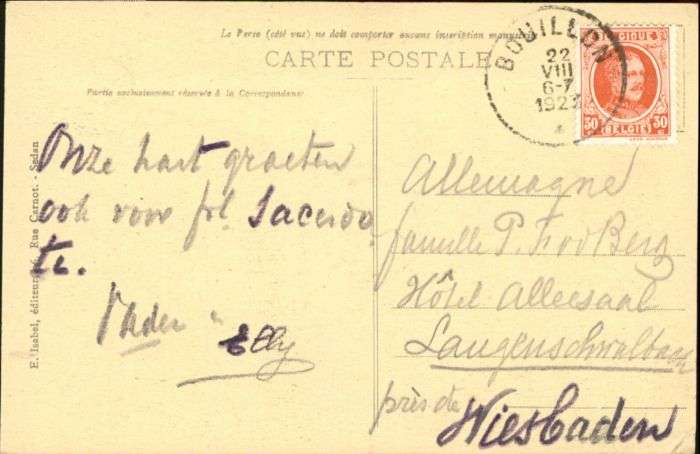 Le Perse (côté vue) ne doit comporter aucune inscription manuscrite
CARTE POSTALE
Partie exclusivement réservée à la Correspondance
BOUILLON
22
VIII
6-7
1927
BELGIQUE
30 30
BELGIË
E. Isabel, éditeur, Rue Carnot. - Sedan
Onze hart groeten
ook voor frl. Sacerdo
te.
Vader Elly
Allemagne
famille P. F. v d Berg
Hôtel Alleesaal
Langenschwalbach
près de Wiesbaden